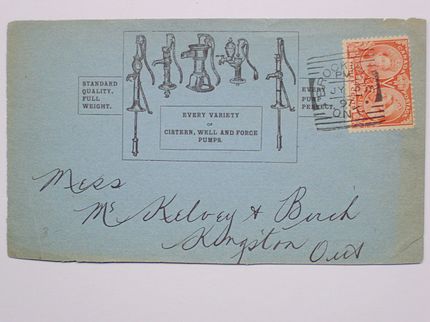 STANDARD
QUALITY,
FULL
WEIGHT.
EVERY VARIETY
OF
CISTERN, WELL AND FORCE
PUMPS.
EVERY
PUMP
PERFECT.
BROCKVILLE
PM
JY
97
ONT
Mess
Mc Kelvey & Birch
Kingston
Ont